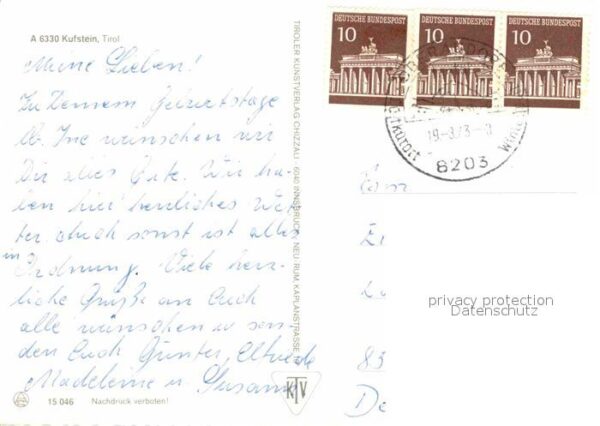 A 6330 Kufstein, Tirol
Meine Lieben!
Zu Deinem Geburtstage
lb. Ine wünschen wir
Dir alles Gute. Wir ha-
ben hier herrliches Wet-
ter auch sonst ist alles
in Ordnung. Viele herz-
liche Grüße an Euch
alle wünschen u. sen-
den Euch Günter, Elfriede
Madeleine u. Susanne
15 046 Nachdruck verboten!
TIROLER KUNSTVERLAG CHIZZALI · 6040 INNSBRUCK - NEU-RUM KAPLANSTRASSE
KTV
DEUTSCHE BUNDESPOST
10
DEUTSCHE BUNDESPOST
10
DEUTSCHE BUNDESPOST
10
8203
Fam
83
De
privacy protection
Datenschutz